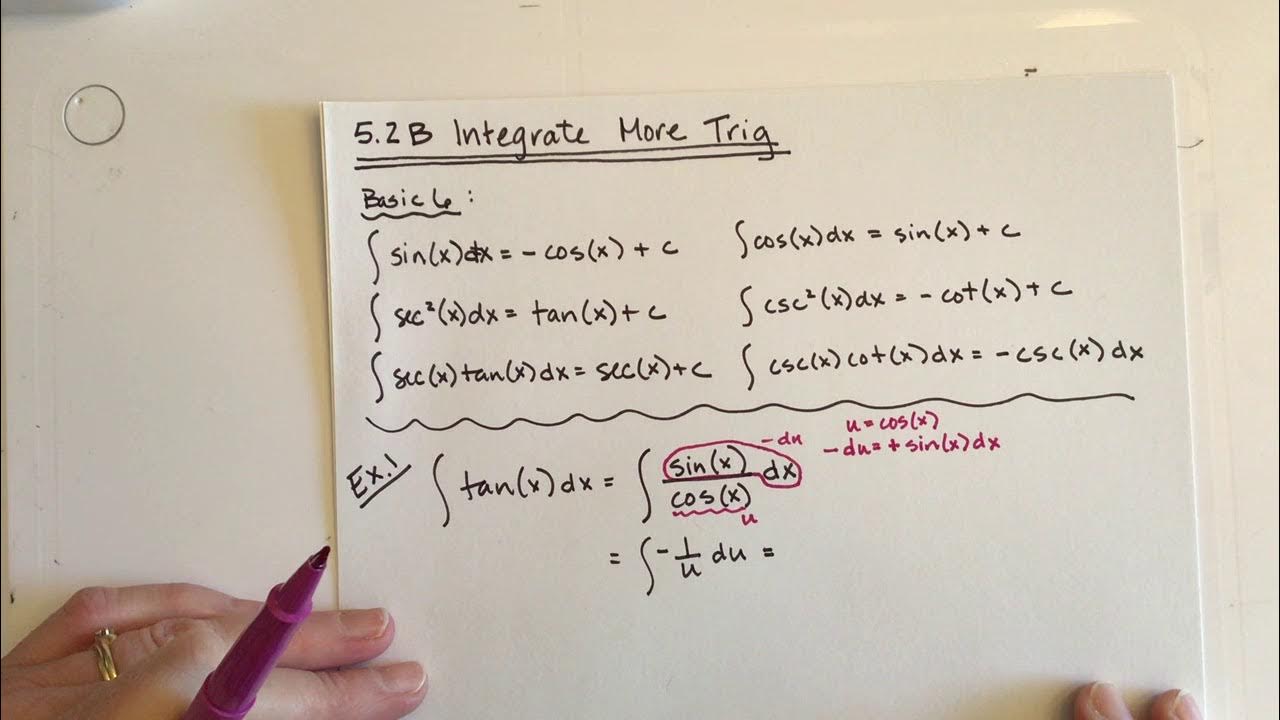 5.2B Integrate More Trig
Basic 6:
∫ sin(x)dx = - cos(x) + c ∫ cos(x)dx = sin(x) + c
∫ sec²(x)dx = tan(x) + c ∫ csc²(x)dx = - cot(x) + c
∫ sec(x)tan(x)dx = sec(x)+c ∫ csc(x)cot(x)dx = -csc(x)dx
u = cos(x)
-du = + sin(x)dx
-du
Ex.1 ∫ tan(x)dx = ∫ sin(x)/cos(x) dx
u
= ∫ - 1/u du =